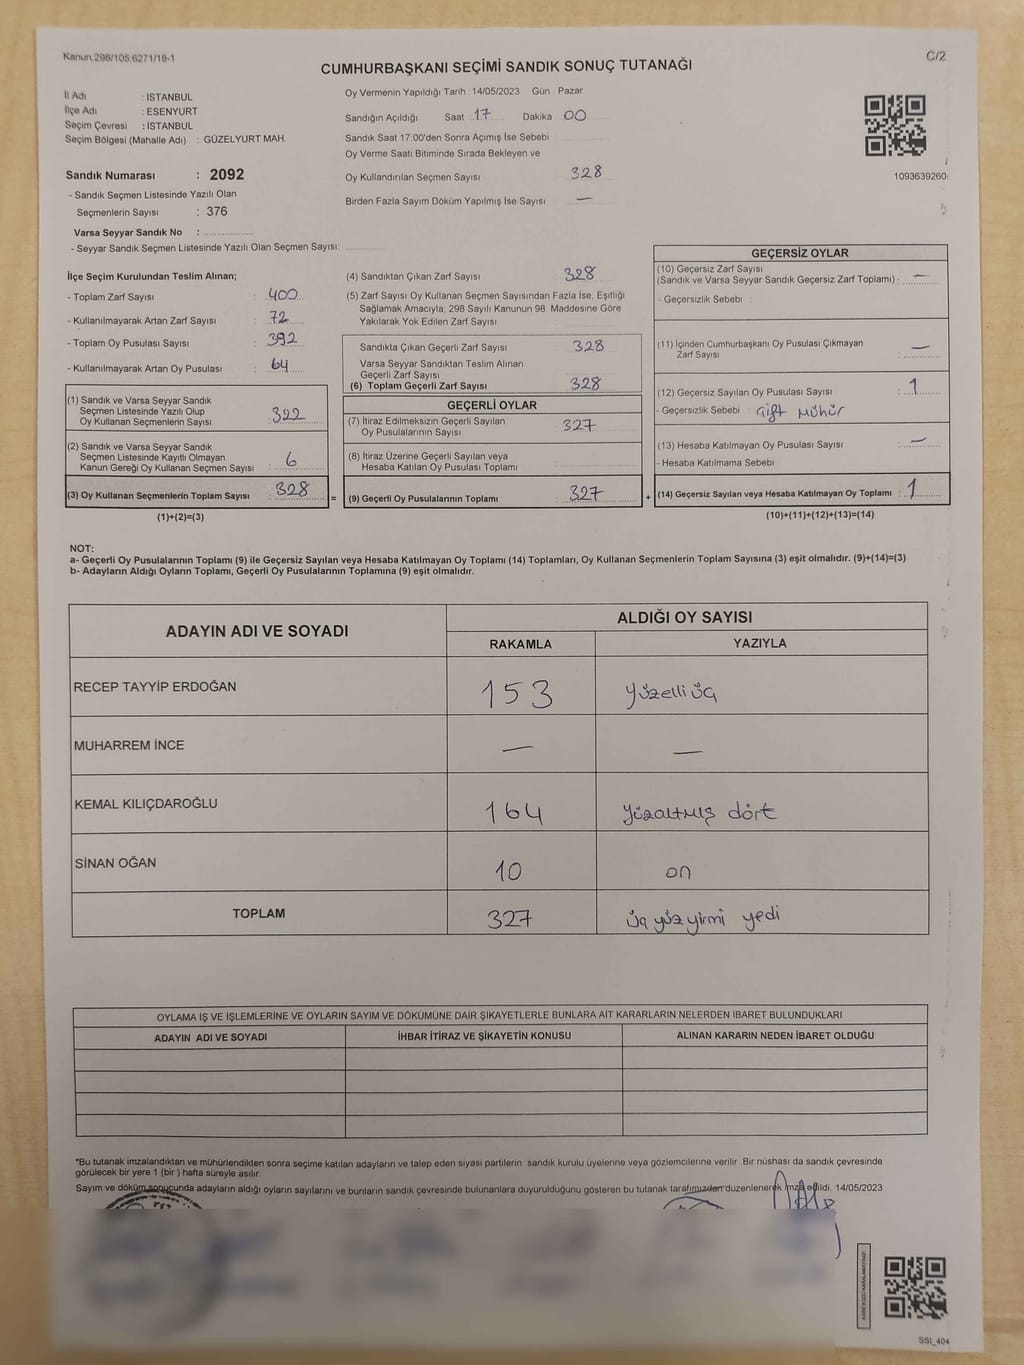 Kanun.298/105;6271/18-1
C/2
CUMHURBAŞKANI SEÇİMİ SANDIK SONUÇ TUTANAĞI
İl Adı : İSTANBUL
İlçe Adı : ESENYURT
Seçim Çevresi : İSTANBUL
Seçim Bölgesi (Mahalle Adı) : GÜZELYURT MAH.
Oy Vermenin Yapıldığı Tarih : 14/05/2023 Gün : Pazar
Sandığın Açıldığı Saat 17 Dakika 00
Sandık Saat 17:00'den Sonra Açımış İse Sebebi
Oy Verme Saati Bitiminde Sırada Bekleyen ve
Oy Kullandırılan Seçmen Sayısı 328
Birden Fazla Sayım Döküm Yapılmış İse Sayısı —
1093639260
Sandık Numarası : 2092
- Sandık Seçmen Listesinde Yazılı Olan
Seçmenlerin Sayısı : 376
Varsa Seyyar Sandık No :
- Seyyar Sandık Seçmen Listesinde Yazılı Olan Seçmen Sayısı:
İlçe Seçim Kurulundan Teslim Alınan;
- Toplam Zarf Sayısı : 400
- Kullanılmayarak Artan Zarf Sayısı : 72
- Toplam Oy Pusulası Sayısı : 392
- Kullanılmayarak Artan Oy Pusulası : 64
(1) Sandık ve Varsa Seyyar Sandık
Seçmen Listesinde Yazılı Olup
Oy Kullanan Seçmenlerin Sayısı : 322
(2) Sandık ve Varsa Seyyar Sandık
Seçmen Listesinde Kayıtlı Olmayan
Kanun Gereği Oy Kullanan Seçmen Sayısı : 6
(3) Oy Kullanan Seçmenlerin Toplam Sayısı : 328
(1)+(2)=(3)
=
(4) Sandıktan Çıkan Zarf Sayısı : 328
(5) Zarf Sayısı Oy Kullanan Seçmen Sayısından Fazla İse, Eşitliği
Sağlamak Amacıyla; 298 Sayılı Kanunun 98. Maddesine Göre
Yakılarak Yok Edilen Zarf Sayısı :
Sandıkta Çıkan Geçerli Zarf Sayısı : 328
Varsa Seyyar Sandıktan Teslim Alınan
Geçerli Zarf Sayısı :
(6) Toplam Geçerli Zarf Sayısı : 328
GEÇERLİ OYLAR
(7) İtiraz Edilmeksizin Geçerli Sayılan
Oy Pusulalarının Sayısı : 327
(8) İtiraz Üzerine Geçerli Sayılan veya
Hesaba Katılan Oy Pusulası Toplamı :
(9) Geçerli Oy Pusulalarının Toplamı : 327
+
GEÇERSİZ OYLAR
(10) Geçersiz Zarf Sayısı
(Sandık ve Varsa Seyyar Sandık Geçersiz Zarf Toplamı) : —
- Geçersizlik Sebebi :
(11) İçinden Cumhurbaşkanı Oy Pusulası Çıkmayan
Zarf Sayısı : —
(12) Geçersiz Sayılan Oy Pusulası Sayısı : 1
- Geçersizlik Sebebi : Çift Mühür
(13) Hesaba Katılmayan Oy Pusulası Sayısı : —
- Hesaba Katılmama Sebebi :
(14) Geçersiz Sayılan veya Hesaba Katılmayan Oy Toplamı : 1
(10)+(11)+(12)+(13)=(14)
NOT:
a- Geçerli Oy Pusulalarının Toplamı (9) ile Geçersiz Sayılan veya Hesaba Katılmayan Oy Toplamı (14) Toplamları, Oy Kullanan Seçmenlerin Toplam Sayısına (3) eşit olmalıdır. (9)+(14)=(3)
b- Adayların Aldığı Oyların Toplamı, Geçerli Oy Pusulalarının Toplamına (9) eşit olmalıdır.
ADAYIN ADI VE SOYADI
ALDIĞI OY SAYISI
RAKAMLA YAZIYLA
RECEP TAYYİP ERDOĞAN 153 yüzelli üç
MUHARREM İNCE — —
KEMAL KILIÇDAROĞLU 164 yüzaltmış dört
SİNAN OĞAN 10 on
TOPLAM 327 üç yüz yirmi yedi
OYLAMA İŞ VE İŞLEMLERİNE VE OYLARIN SAYIM VE DÖKÜMÜNE DAİR ŞİKAYETLERLE BUNLARA AİT KARARLARIN NELERDEN İBARET BULUNDUKLARI
ADAYIN ADI VE SOYADI İHBAR İTİRAZ VE ŞİKAYETİN KONUSU ALINAN KARARIN NEDEN İBARET OLDUĞU
*Bu tutanak imzalandıktan ve mühürlendikten sonra seçime katılan adayların ve talep eden siyasi partilerin sandık kurulu üyelerine veya gözlemcilerine verilir. Bir nüshası da sandık çevresinde
görülecek bir yere 1 (bir) hafta süreyle asılır.
Sayım ve döküm sonucunda adayların aldığı oyların sayılarını ve bunların sandık çevresinde bulunanlara duyurulduğunu gösteren bu tutanak tarafımızdan düzenlenerek imza edildi. 14/05/2023
SSI_404